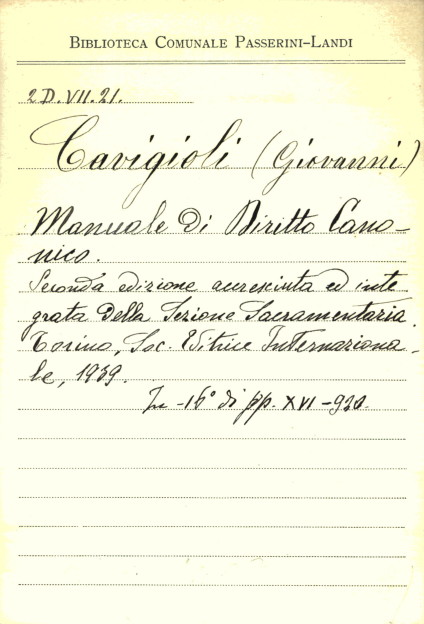 BIBLIOTECA COMUNALE PASSERINI-LANDI
2 D. VII. 21.
Cavigioli (Giovanni)
Manuale di Diritto Cano-
nico.
Seconda edizione accresciuta ed inte
grata della Sezione Sacramentaria.
Torino, Soc. Editrice Internaziona-
le, 1939.
In -16° di pp. XVI -